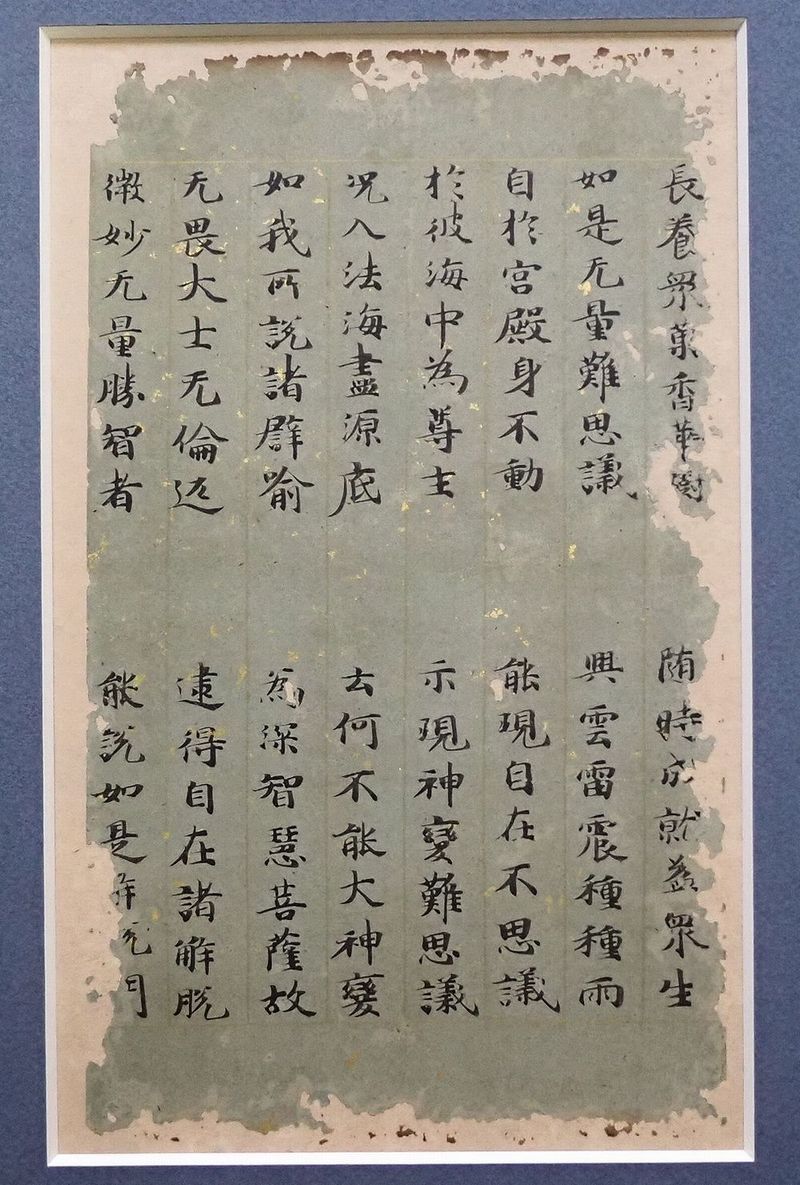 長養眾藥香華樹 随時成就益眾生
如是无量難思議 興雲雷震種種雨
自於宮殿身不動 能現自在不思議
於彼海中為尊主 示現神變難思議
况入法海盡源底 云何不能大神變
如我所說諸譬喻 為深智慧菩薩故
无畏大士无倫迊 逮得自在諸解脫
微妙无量勝智者 能說如是